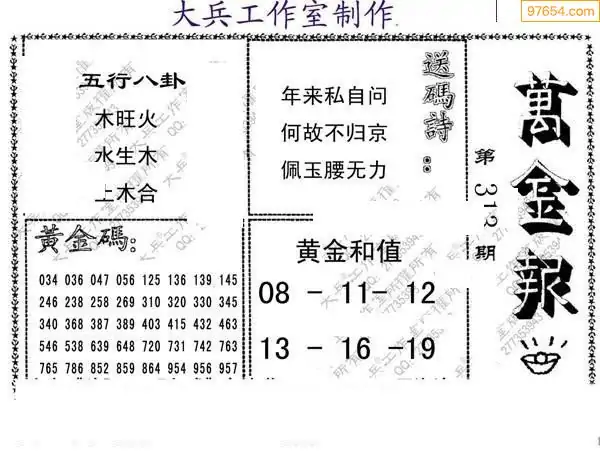 大兵工作室制作
97654.com
五行八卦
木旺火
水生木
上木合
年来私自问
何故不归京
佩玉腰无力
送碼詩：
萬金報
第312期
黃金碼:
034 036 047 056 125 136 139 145
246 238 258 269 310 320 330 345
340 368 387 389 403 415 432 463
546 538 639 648 720 731 742 763
765 786 852 859 864 954 956 957
黄金和值
08 - 11- 12
13 - 16 -19